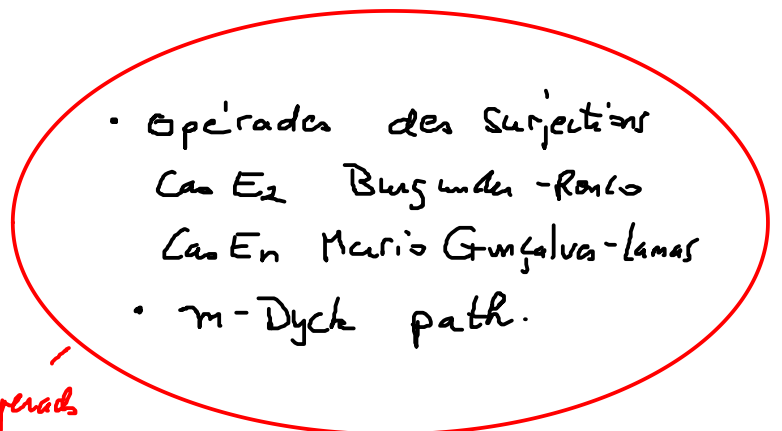 • opérades des Surjections
Cas E2 Burgunder-Ronco
Cas En Mario Gonçalves-Lamas
• m-Dyck path.
perads